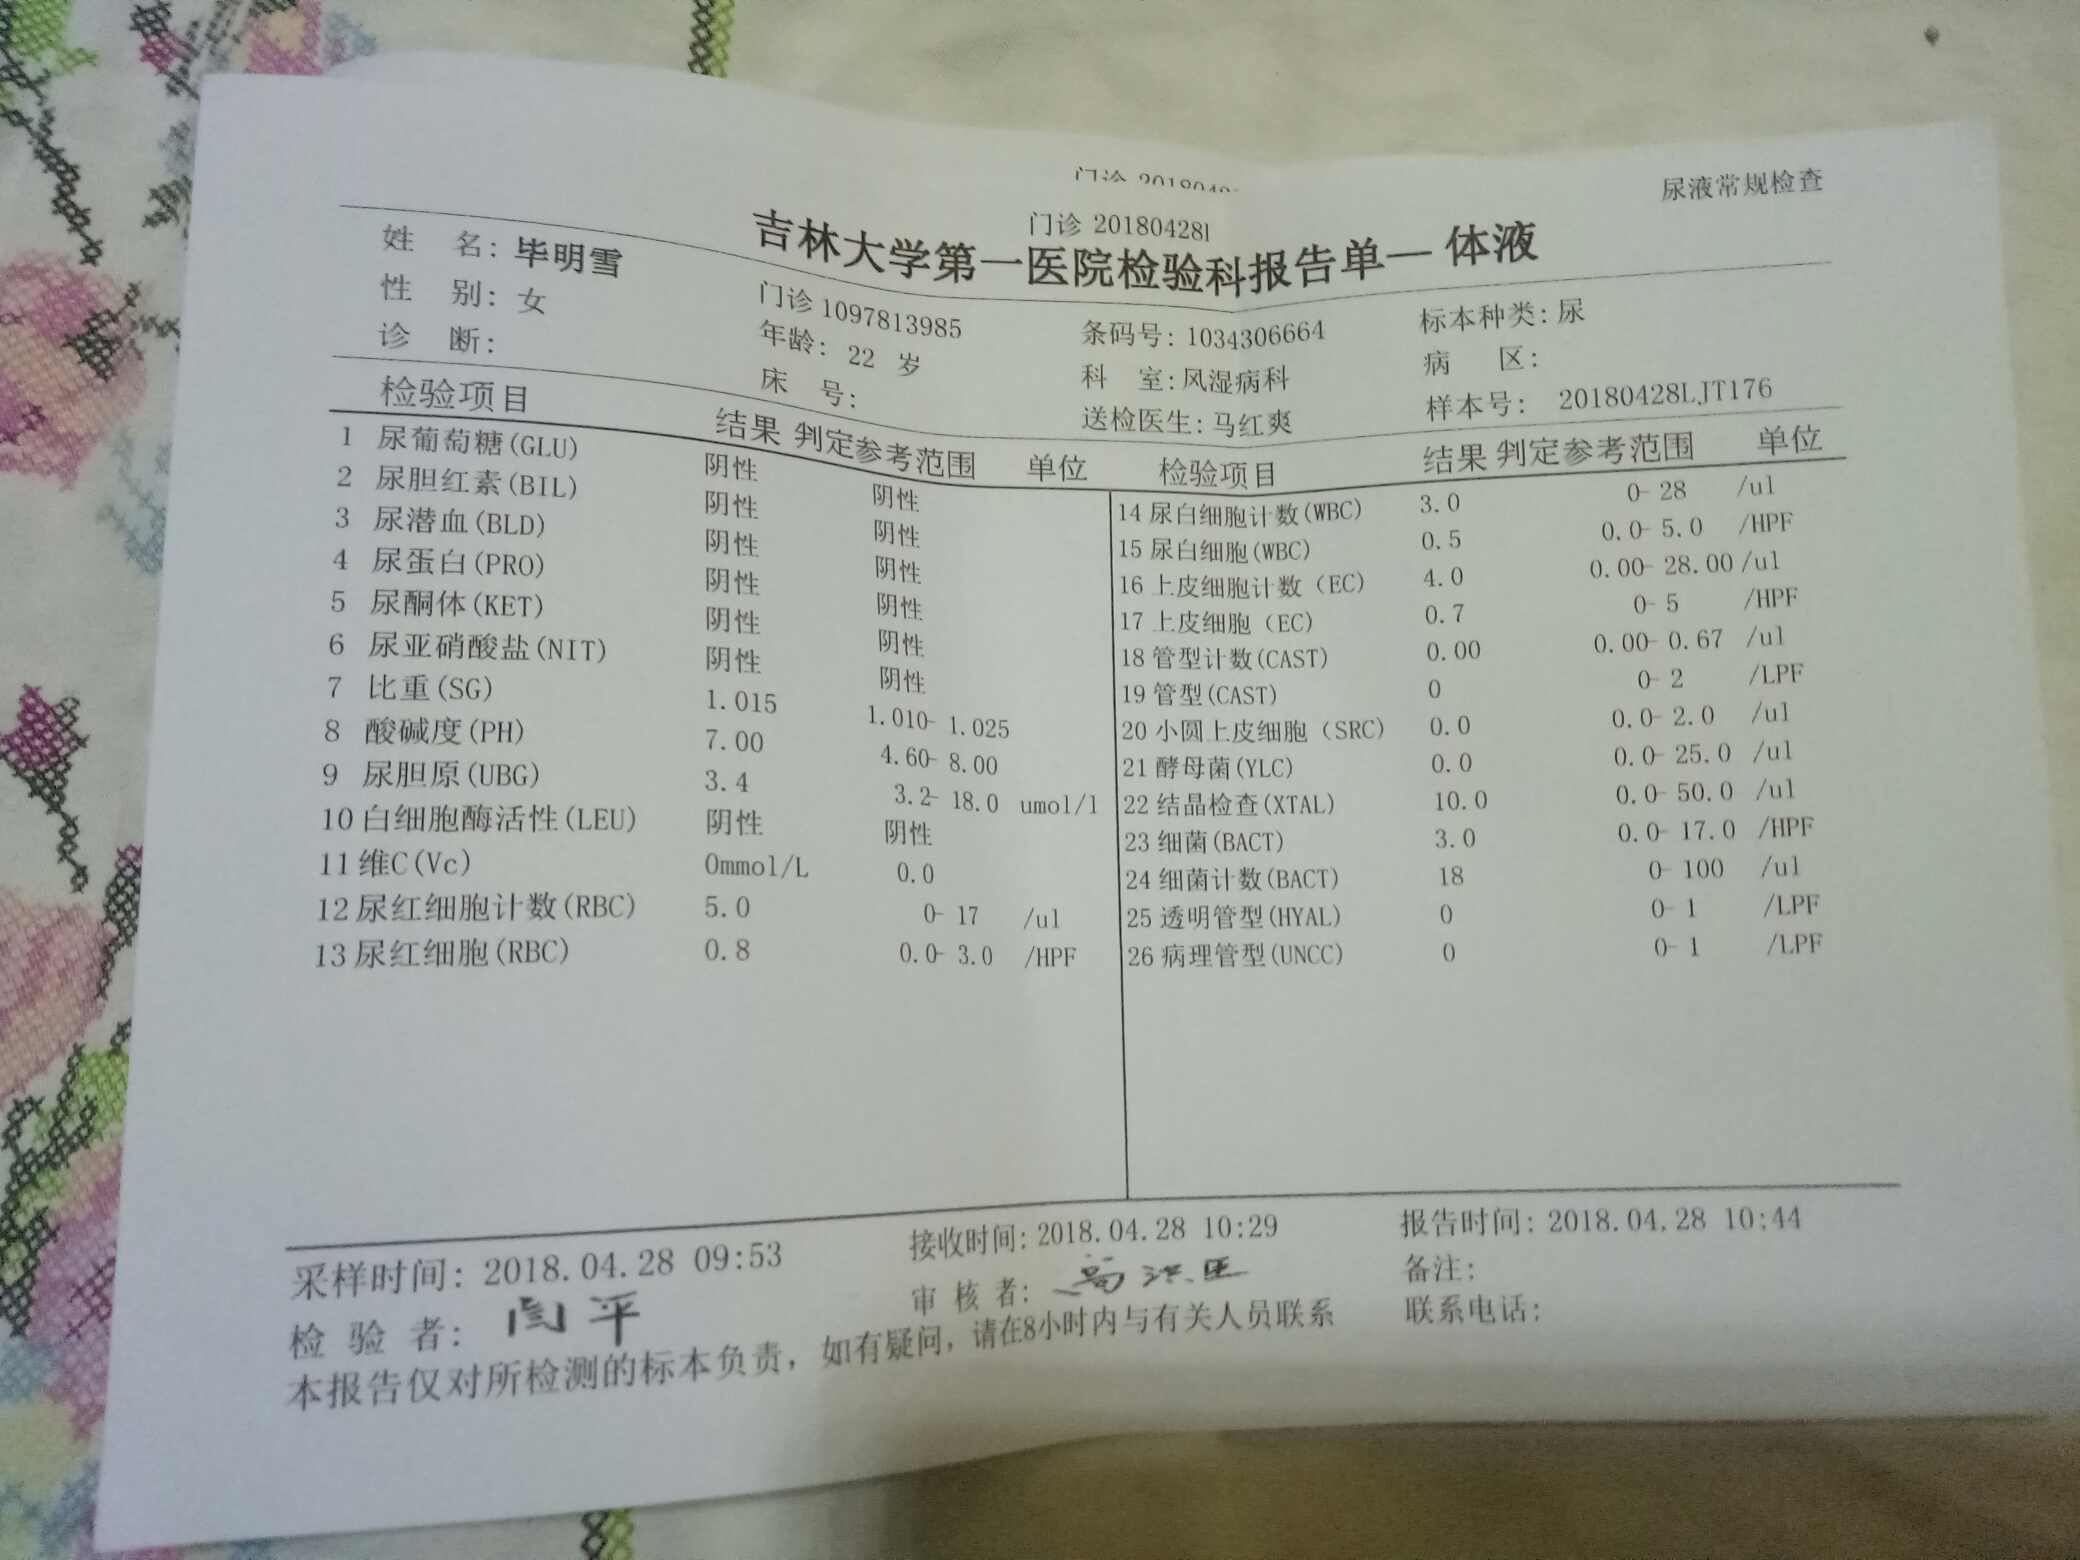 尿液常规检查
门诊 20180428l
吉林大学第一医院检验科报告单—体液
姓 名: 毕明雪 门诊 1097813985 条码号: 1034306664 标本种类: 尿
性 别: 女 年龄: 22 岁 科 室: 风湿病科 病 区:
诊 断: 床 号: 送检医生: 马红爽 样本号: 20180428LJT176
检验项目 结果 判定参考范围 单位 检验项目 结果 判定参考范围 单位
1 尿葡萄糖(GLU) 阴性 阴性
2 尿胆红素(BIL) 阴性 阴性
3 尿潜血(BLD) 阴性 阴性
4 尿蛋白(PRO) 阴性 阴性
5 尿酮体(KET) 阴性 阴性
6 尿亚硝酸盐(NIT) 阴性 阴性
7 比重(SG) 1.015 1.010- 1.025
8 酸碱度(PH) 7.00 4.60- 8.00
9 尿胆原(UBG) 3.4 3.2- 18.0 umol/l
10 白细胞酶活性(LEU) 阴性 阴性
11 维C(Vc) 0mmol/L 0.0
12 尿红细胞计数(RBC) 5.0 0- 17 /ul
13 尿红细胞(RBC) 0.8 0.0- 3.0 /HPF
14 尿白细胞计数(WBC) 3.0 0- 28 /ul
15 尿白细胞(WBC) 0.5 0.0- 5.0 /HPF
16 上皮细胞计数（EC) 4.0 0.00- 28.00 /ul
17 上皮细胞（EC) 0.7 0- 5 /HPF
18 管型计数(CAST) 0.00 0.00- 0.67 /ul
19 管型(CAST) 0 0- 2 /LPF
20 小圆上皮细胞（SRC) 0.0 0.0- 2.0 /ul
21 酵母菌(YLC) 0.0 0.0- 25.0 /ul
22 结晶检查(XTAL) 10.0 0.0- 50.0 /ul
23 细菌(BACT) 3.0 0.0- 17.0 /HPF
24 细菌计数(BACT) 18 0- 100 /ul
25 透明管型(HYAL) 0 0- 1 /LPF
26 病理管型(UNCC) 0 0- 1 /LPF
采样时间: 2018.04.28 09:53 接收时间: 2018.04.28 10:29 报告时间: 2018.04.28 10:44
检 验 者: 闫平 审 核 者: 备注:
本报告仅对所检测的标本负责, 如有疑问, 请在8小时内与有关人员联系 联系电话: